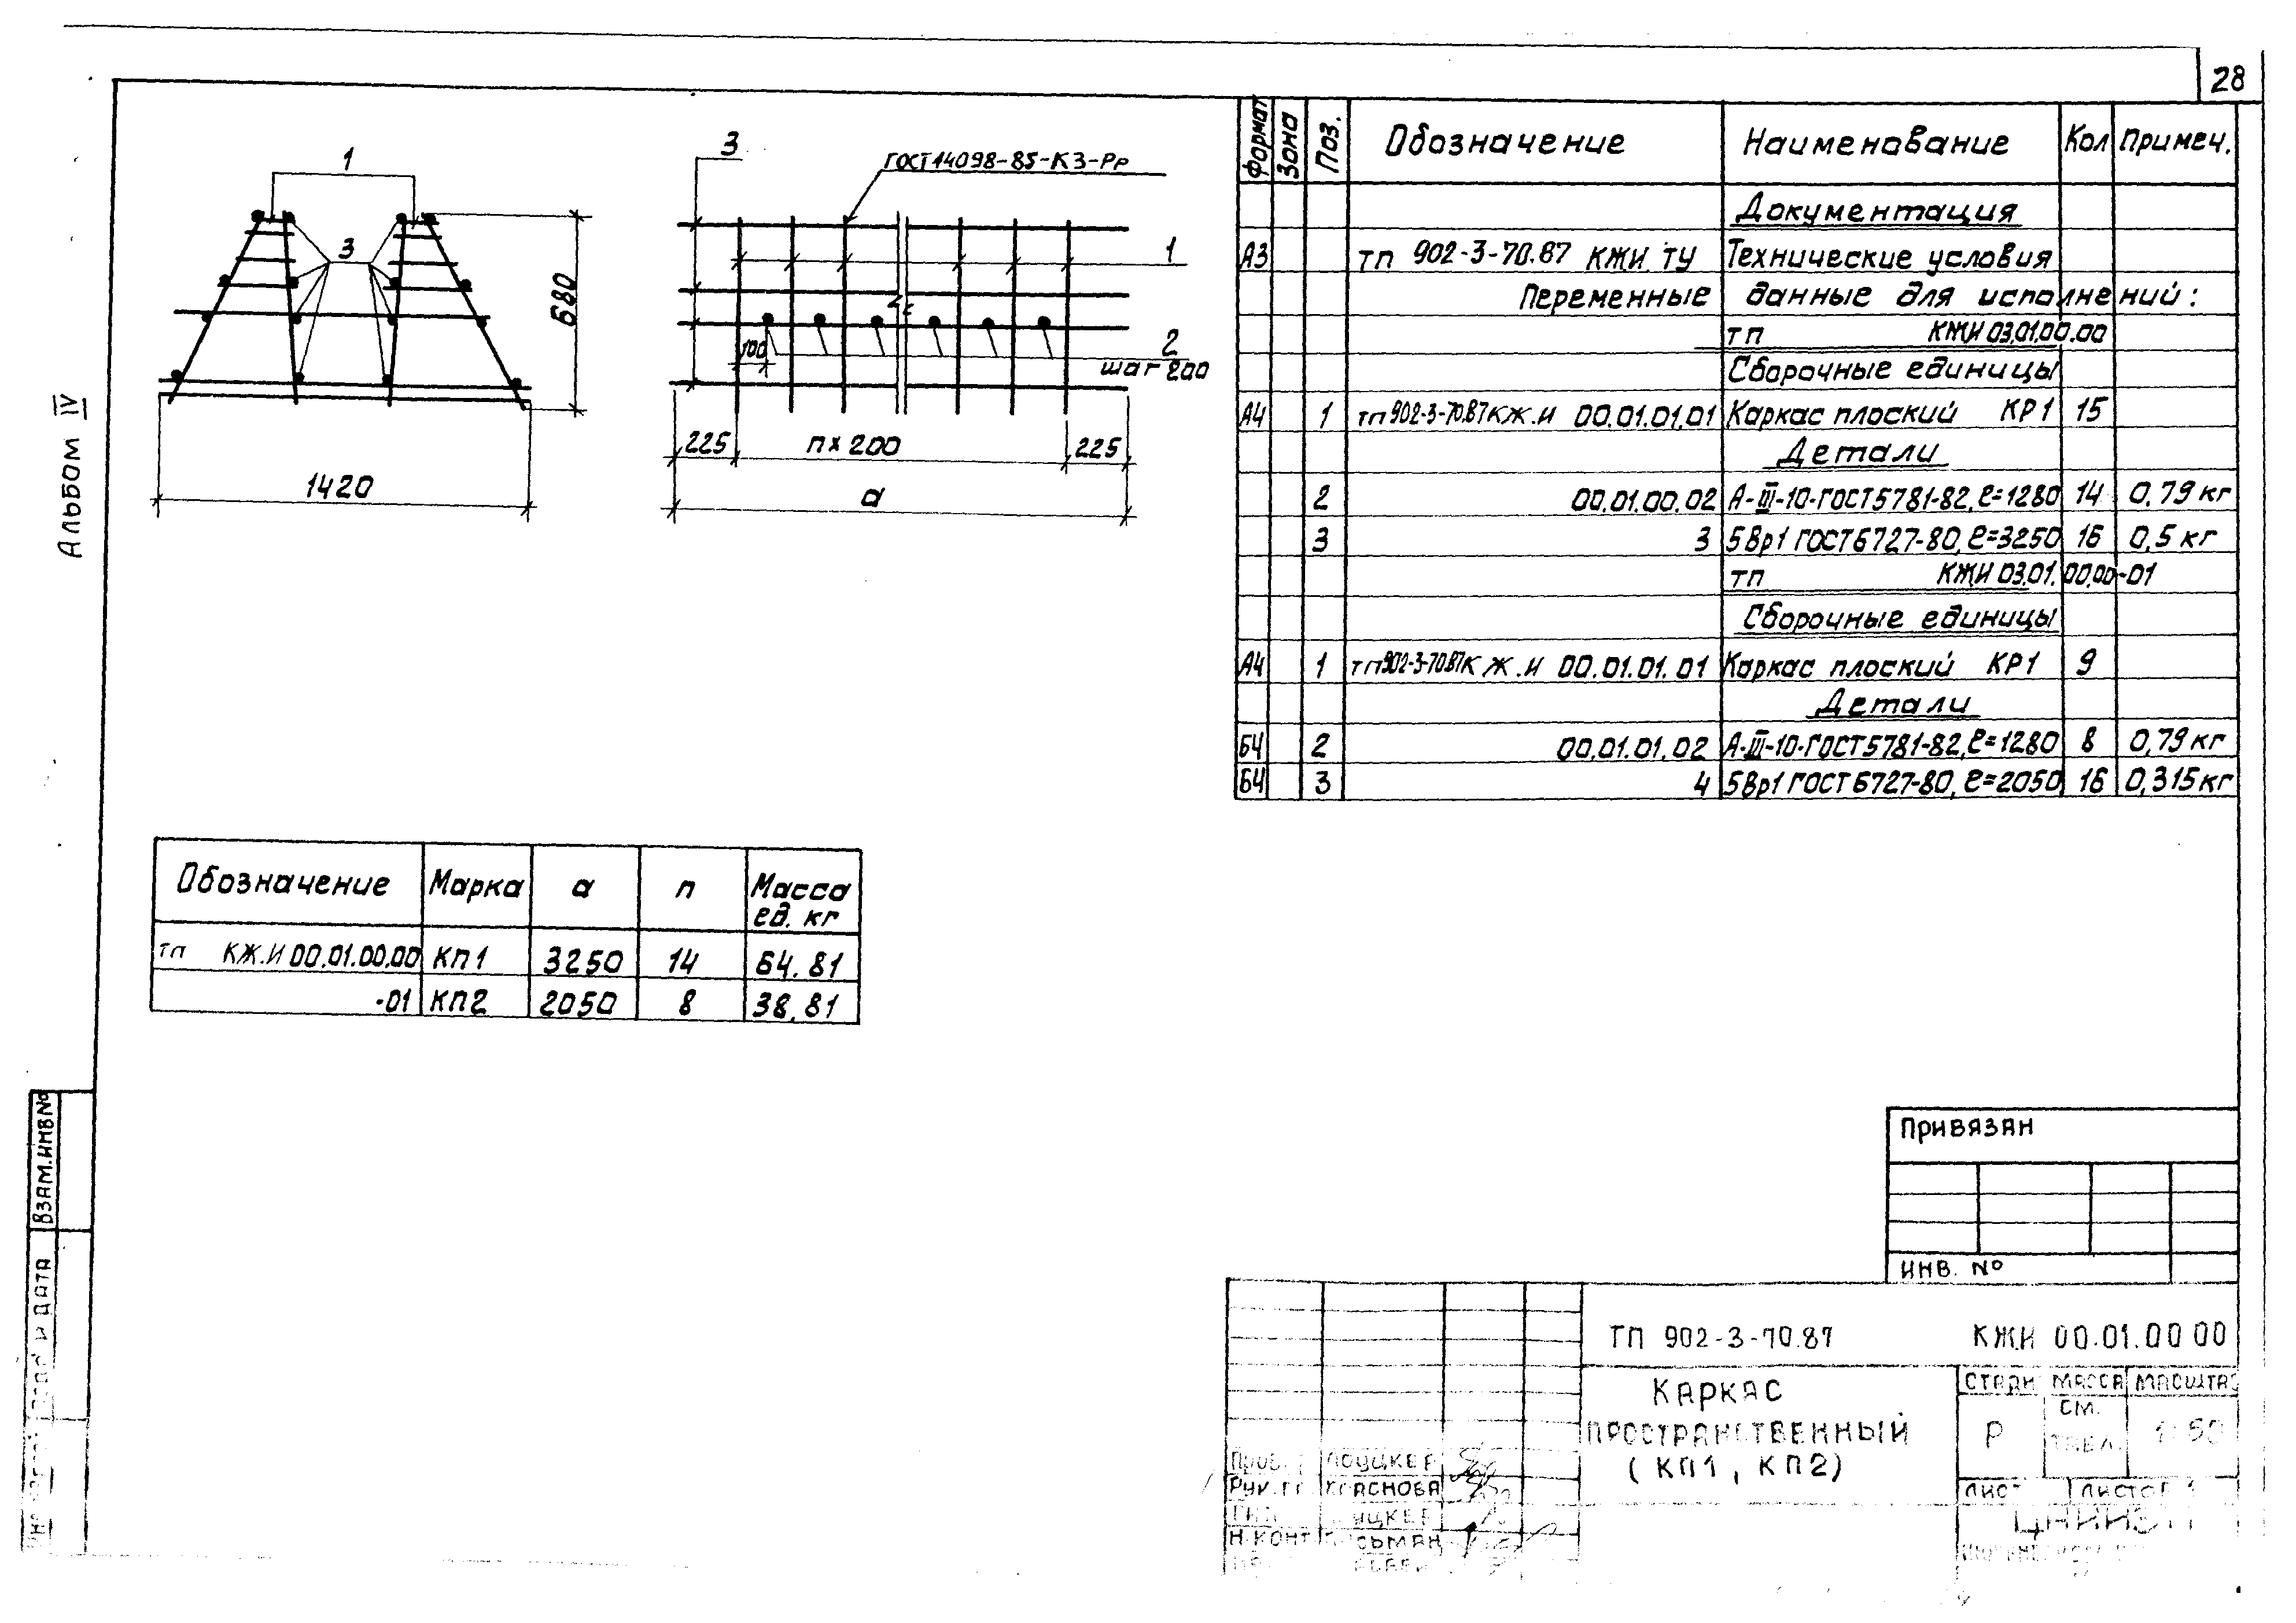 28
Альбом IV
1
3
680
1420
3
ГОСТ14098-85-К3-Рр
1
100
2
шаг 200
225
п х 200
225
а
Формат Зона Поз. Обозначение Наименование Кол Примеч.
Документация
А3 тп 902-3-70.87 КЖИ ТУ Технические условия
Переменные данные для исполнений:
тп КЖИ 03.01.00.00
Сборочные единицы
А4 1 тп902-3-70.87КЖ.И 00.01.01.01 Каркас плоский КР1 15
Детали
2 00.01.00.02 А-III-10-ГОСТ5781-82, ℓ=1280 14 0,79 кг
3 3 5Вр1 ГОСТ6727-80, ℓ=3250 16 0,5 кг
тп КЖИ 03.01.00.00-01
Сборочные единицы
А4 1 тп902-3-70.87КЖ.И 00.01.01.01 Каркас плоский КР1 9
Детали
БЧ 2 00.01.01.02 А-III-10-ГОСТ5781-82, ℓ=1280 8 0,79 кг
БЧ 3 4 5Вр1 ГОСТ6727-80, ℓ=2050 16 0,315кг
Обозначение Марка а п Масса ед. кг
тп КЖ.И 00.01.00.00 КП1 3250 14 64.81
-01 КП2 2050 8 38,81
Взам.инв№
и дата
Привязан
инв. №
ТП 902-3-70.87 КЖИ 00.01.00 00
Каркас
пространственный
(КП1, КП2)
Стади Масса Масштаб
Р см. табл. 1:50
Лист Листов 1
Рук.гр. Краснова
Н.конт